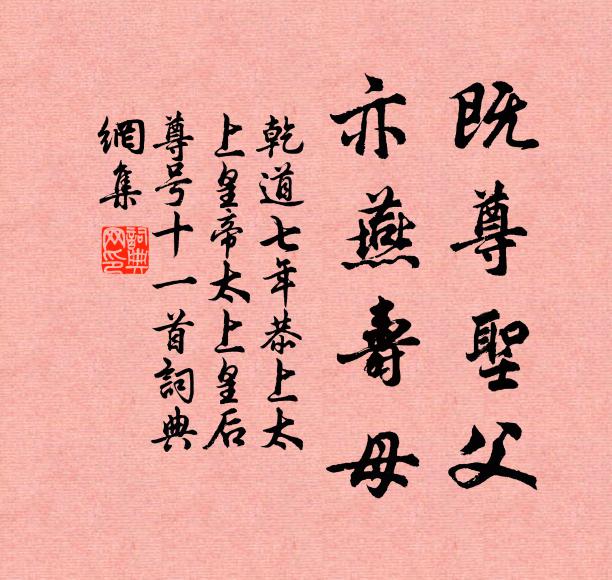 既尊聖父
亦燕壽母
乾道七年恭上太
上皇帝太上皇后
尊号十一首詞典
網集
詞典網印